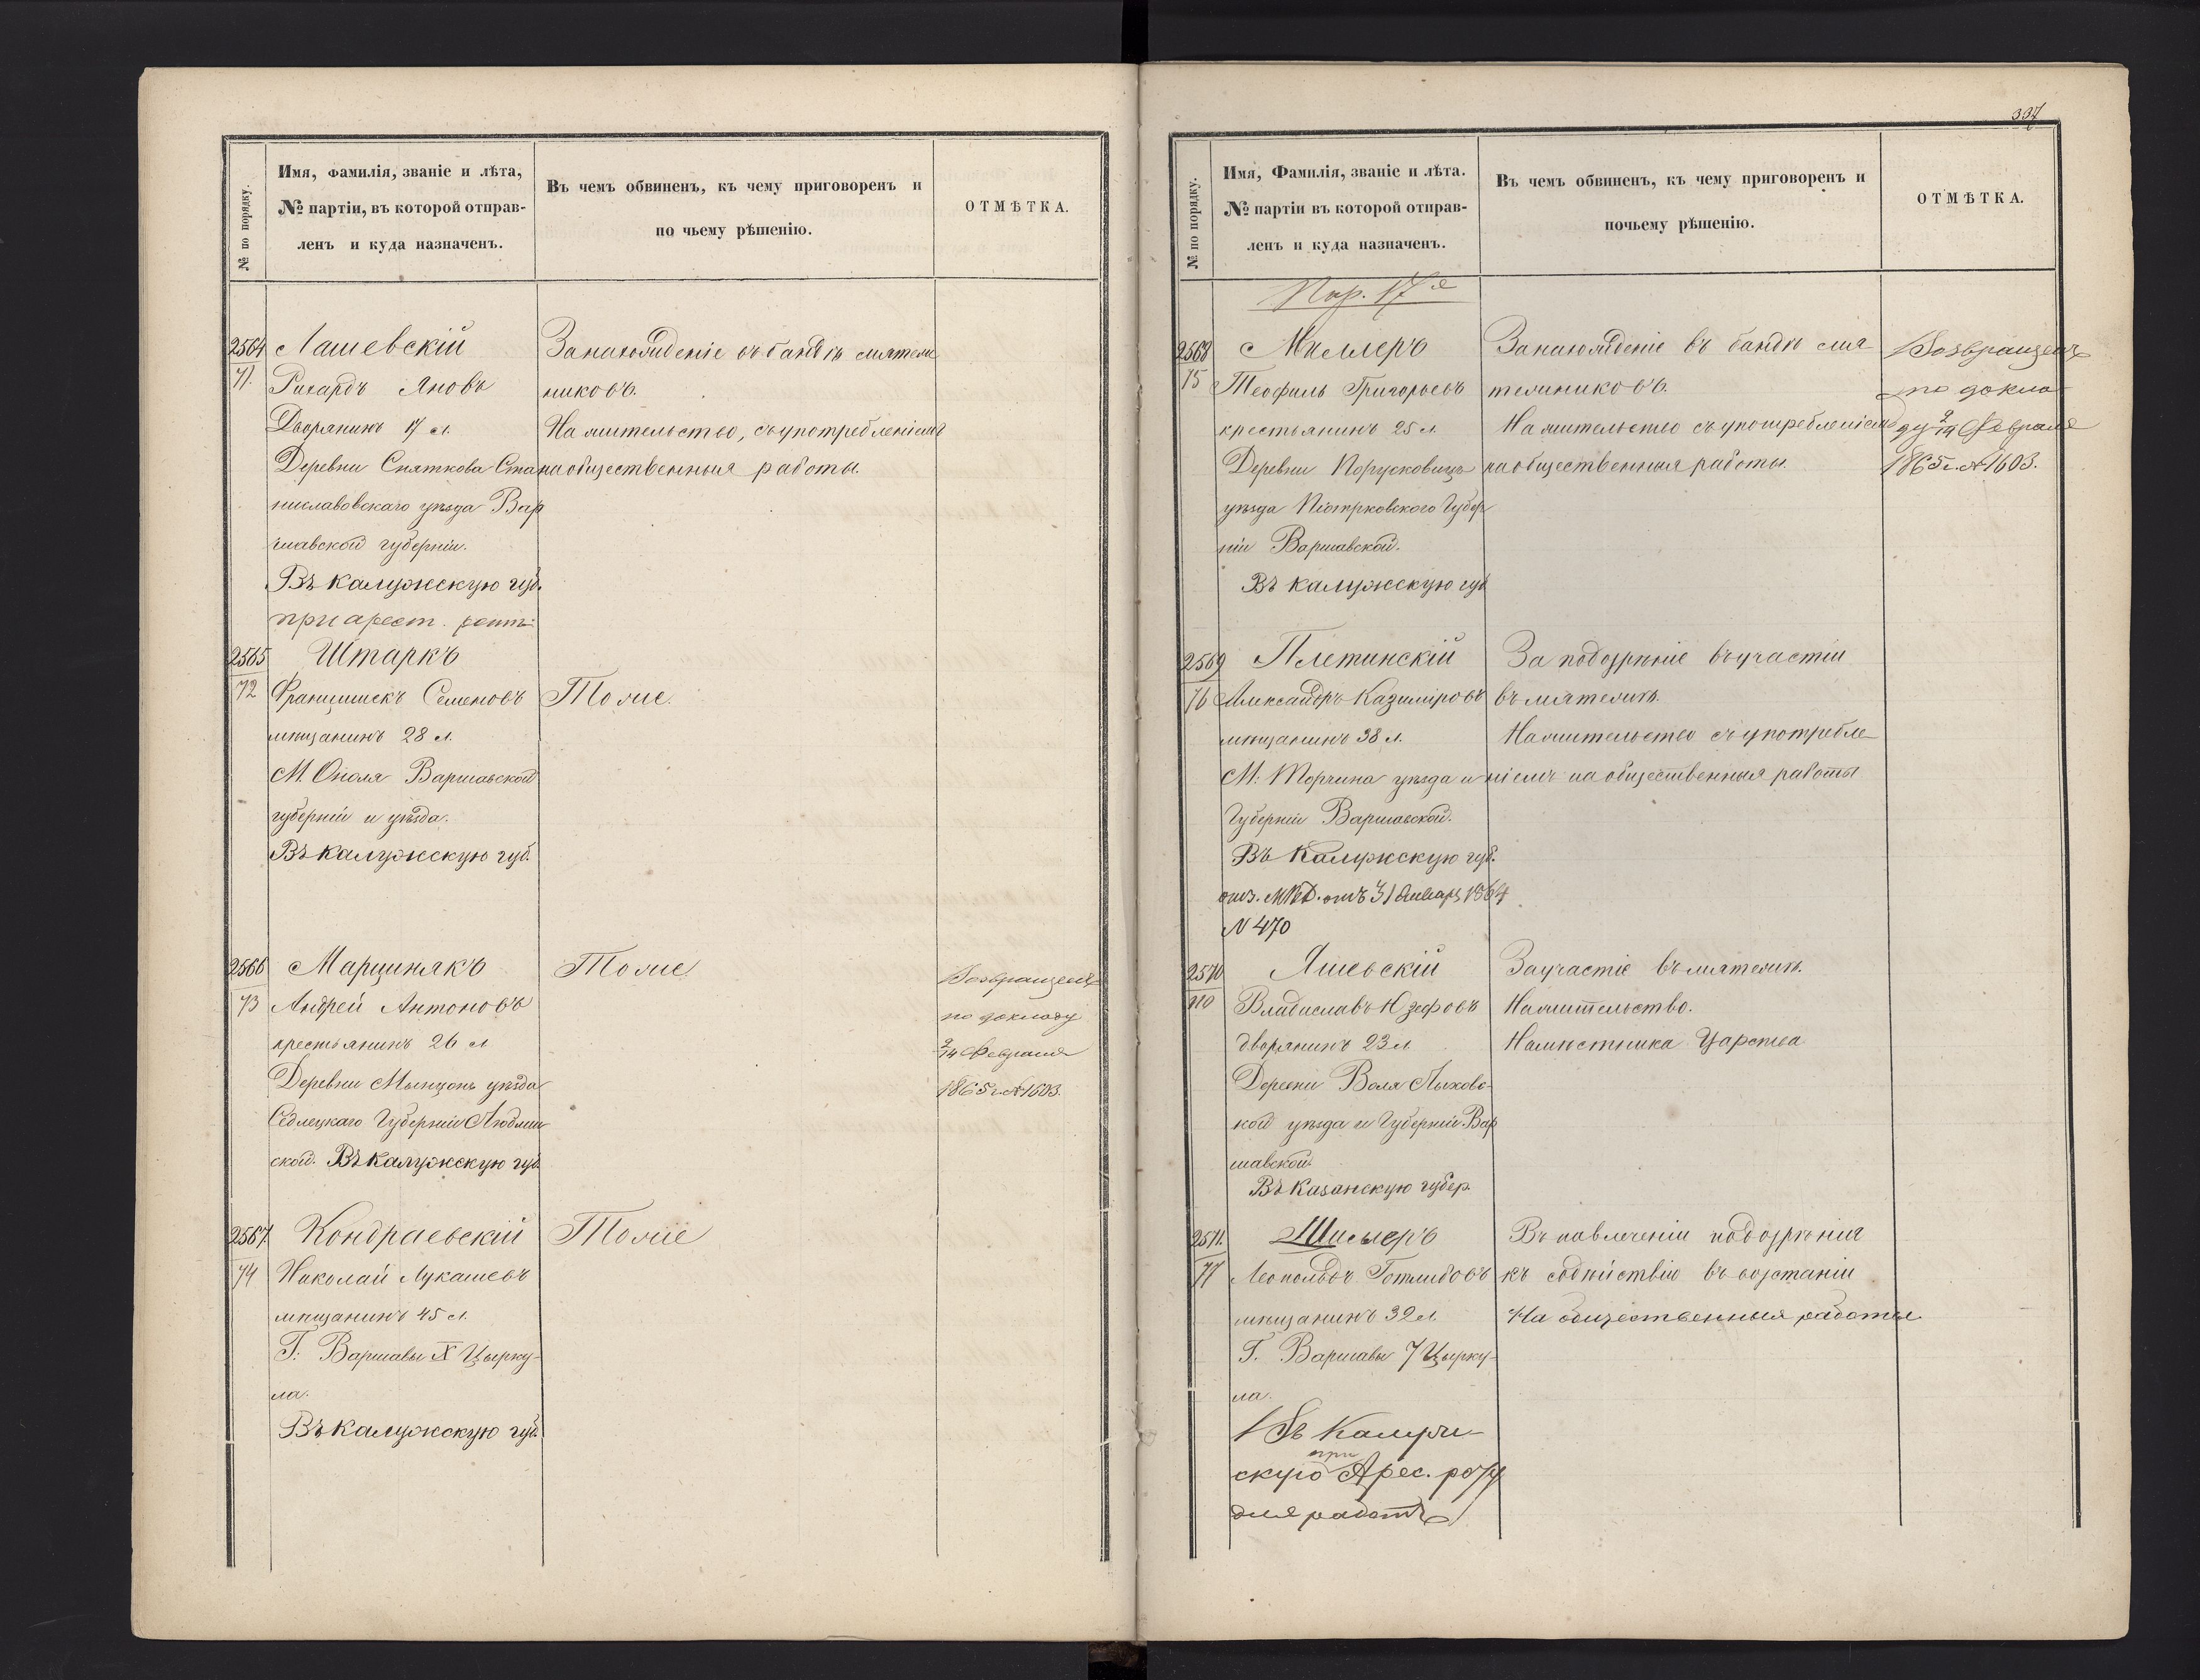 № по порядку.
Имя, фамилія, званіе и лѣта,
№ партіи, въ которой отправ-
ленъ и куда назначенъ.
Въ чемъ обвиненъ, къ чему приговоренъ и
по чьему рѣшенію.
ОТМѢТКА.
2564
71.
Лашевскій
Рихардъ Яновъ
Дворянинъ 17 л.
Деревни Сняткова Ста
ниславовскаго уѣзда Вар
шавской губерніи.
Въ калужскую губ.
при арест. ротѣ
За нахожденіе въ бандѣ мятеж
никовъ.
На жительство, съ употребленіемъ
на общественныя работы.
2565
72
Штаркъ
Францишекъ Семеновъ
мѣщанинъ 28 л.
М. Ополя Варшавской
губерніи и уѣзда.
Въ калужскую губ.
Тоже.
2566
73
Марцинякъ
Андрей Антоновъ
крестьянинъ 26 л
Деревни уѣзда
Седлецкаго Губерніи Люблин
ской. Въ калужскую губ.
Тоже
Возвращенъ
по докладу
2/14 Февраля
1865 г. № 1603.
2567
74
Кондраевскій
Николай Лукашевъ
мѣщанинъ 45 л.
Г. Варшавы X Цырку-
ла.
Въ калужскую губ.
Тоже
337
№ по порядку.
Имя, Фамилія, званіе и лѣта.
№ партіи въ которой отправ-
ленъ и куда назначенъ.
Въ чемъ обвиненъ, къ чему приговоренъ и
почьему рѣшенію.
ОТМѢТКА.
Пар. 17я
2568
75
Миллеръ
Теофиль Григорьевъ
крестьянинъ 25 л.
Деревни
уѣзда Піотрковского Губер
ніи Варшавской.
Въ калужскую губ
За нахожденіе въ бандѣ мя
тежниковъ.
На жительство съ употребленіем
на общественныя работы.
Возвращенъ
по докла
ду 2/14 Февраля
1865 г. № 1603.
2569
76
Плетинскій
Александръ Казиміровъ
мѣщанинъ 38 л.
М. Торчина уѣзда и
Губерніи Варшавской.
Въ Калужскую губ.
отз. МВД. отъ 31 Января 1864
N 470
За подозрѣніе въ участіи
въ мятежѣ.
На жительство съ употребле
ніемъ на общественныя работы
2570
110
Яшевскій
Владиславъ Юзефовъ
дворянинъ 23 л
Деревни Воля Лыковс-
кой уѣзда и Губерніи Вар
шавской
Въ Казанскую губер.
За участіе въ мятежѣ.
На жительство.
Намѣстника Царства
2571.
77
Леопольдъ Готлибовъ
мѣщанинъ 32 л
Г. Варшавы 7 Цырку-
ла.
Въ Калуж-
скую при Арес. роту
для работъ
Въ навлеченіи подозрѣнія
къ содѣйствію въ возстаніи
На общественныя работы